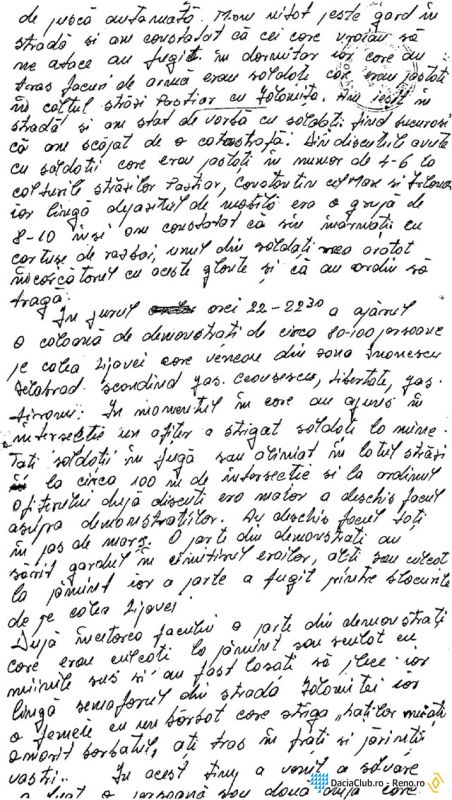 de pușcă automată. M-am uitat peste gard în
stradă și am constatat că cei care vroiau să
ne atace au fugit în dormitor iar care au
tras focuri de armă erau soldați care erau postați
în colțul străzi Pastior cu Ialomița. Am ieșit în
stradă și am stat de vorbă cu soldații fiind bucuroși
că am scăpat de o catastrofă. Din discuțiile avute
cu soldații care erau postați în număr de 4-6 la
colțurile străzilor Pastior, Constantin cel Mare și
iar lîngă depozitul de mobilă era o grupă de
8-10 inși am constatat că sin înarmați cu
cartușe de razboi, unul din soldați mea arătat
încărcătorul cu aceste gloanțe și că au ordin să
tragă.
In jurul orei 22-22³⁰ a apărut
o coloană de demonstrați de circa 80-100 persoane
pe calea Lipovei care veneau din zona
scandînd jos Ceaușescu, libertate, jos
tiranu. In momentul în care au ajuns în
intersecție un ofițer a strigat soldați la mine.
Toți soldații în fugă sau aliniat în lotul străzi
la circa 100 m de intersecție și la ordinul
ofițerului după discuți era maior a deschis focul
asupra demonstraților. Au deschis focul toți
în pas de marș. O parte din demonstrați au
sărit gardul în cimitirul eroilor, alți sau culcat
la pămînt iar o parte a fugit printre blocurile
de pe calea Lipovei
După încetarea focului o parte din demonstrați
care erau culcați la pămînt sau sculat cu
mîinile sus și au fost lăsați să plece iar
lîngă semaforul din stradă Ialomiței iar
o femeie cu un bărbat care striga "hoților miați
omorît barbatul, ați tras în frați și părinții
voștri". In acest timp a venit o salvare
a luat o persoană sau două după care
DaciaClub.ro - Reno.ro